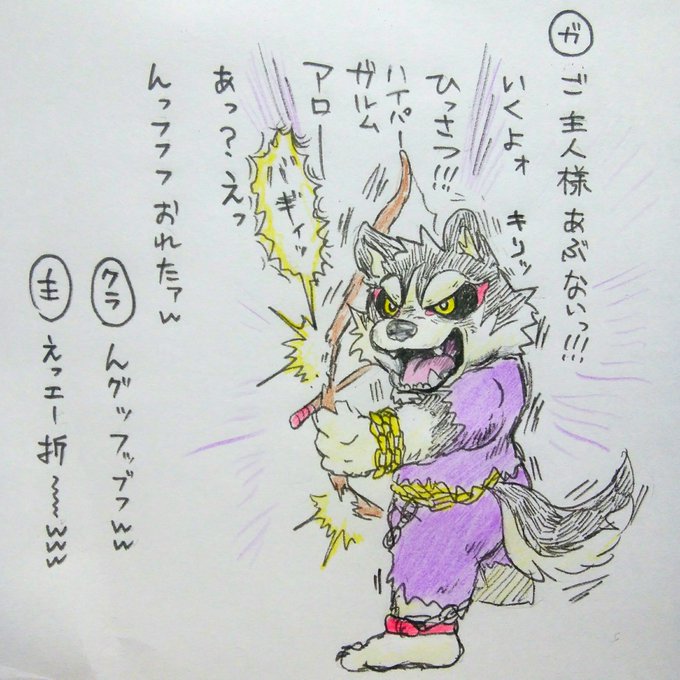 ガ ご主人様あぶないっ!!!
いくよォ キリッ
ひっさつ!!!
ハイパー
ガルム
アロー
バギィッ
あっ?えっ
んっフフフおれたァw
クラ んグッフッブフッww
主 えっエー折〜〜www